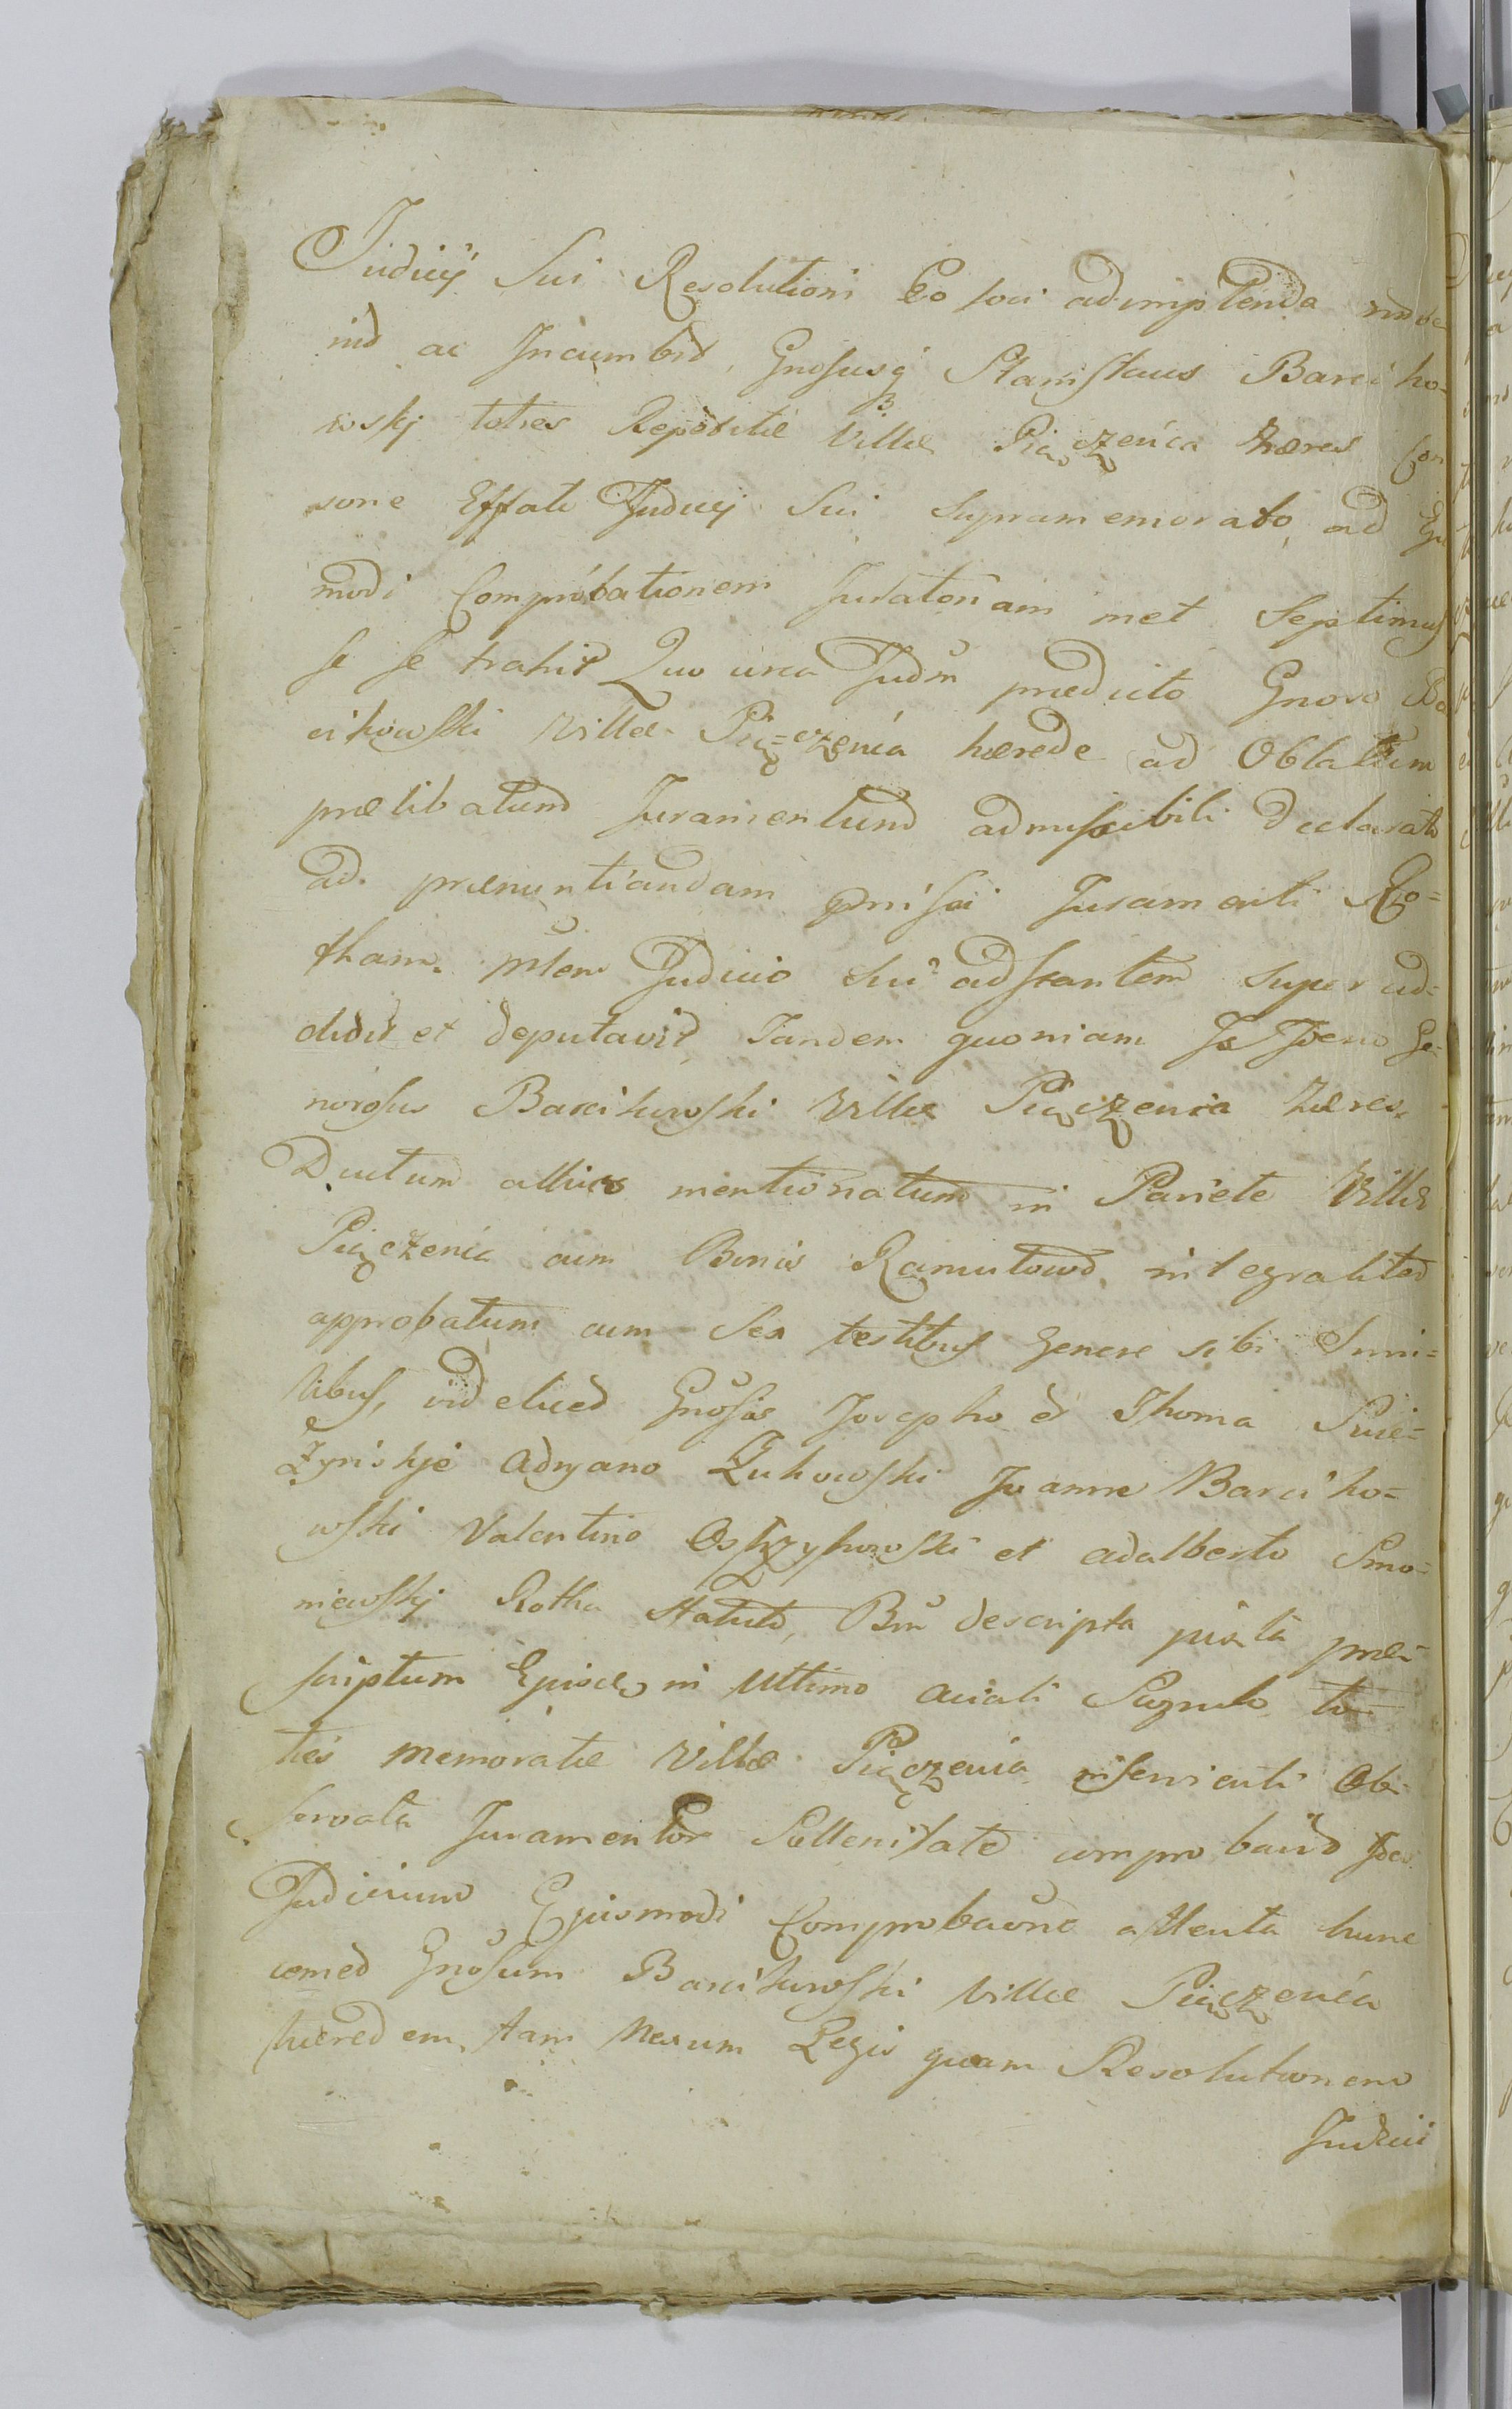 Judicij Sui Resolutioni Eo loci adimplenda
nid ac Incumbit, Gnosusq Stanislaus Barciho-
wskj toties Repetitæ Villæ Piączenica hæres Con
sone Effati Judicij Sui supramemorato, ad Eju
modi Comprobationem Juratoriam met Septimus
se se trahit Quo circa Judm prædicto Gnoso Ba
cikowski Villæ Pią=czenica hærede ad Oblatum
prælibatum Juramentum admissibili declarato
ad prænuntiandam Juramenti Ro=
tham. Judicio Sui adstantem super ad-
didit et deputavit, Tandem quoniam Idem Ge-
norosus Barcikowski Villæ Piączenica hæres
Ductum altius mentionatum in Pariete Villæ
Piączenica cum Bonis Ramutowo integraliter
approbatum cum Sex testibus genere sibi Simi=
libus, videlicet Gnosis Josepho et Thoma Swie-
żynskje Adryano Żukowski Joanne Barciko=
wski Valentino Ostrzykowski et Adalberto Smo-
niewskj Rotha Statuto, Brū descripta juxta præ-
scriptum Ejusd in Ultimo aciali Scopulo to-
ties memoratæ Villæ Piączenica inservienti Ob-
servata Juramentor Sollenitate comprobavit Ideo
Judicium Ejusmodi Comprobaōne attenta hunc
cemed Gnosum Barcikowski Villæ Piączenica
hæredem, tam Nexum Legis quam Resolutionem
Judicii